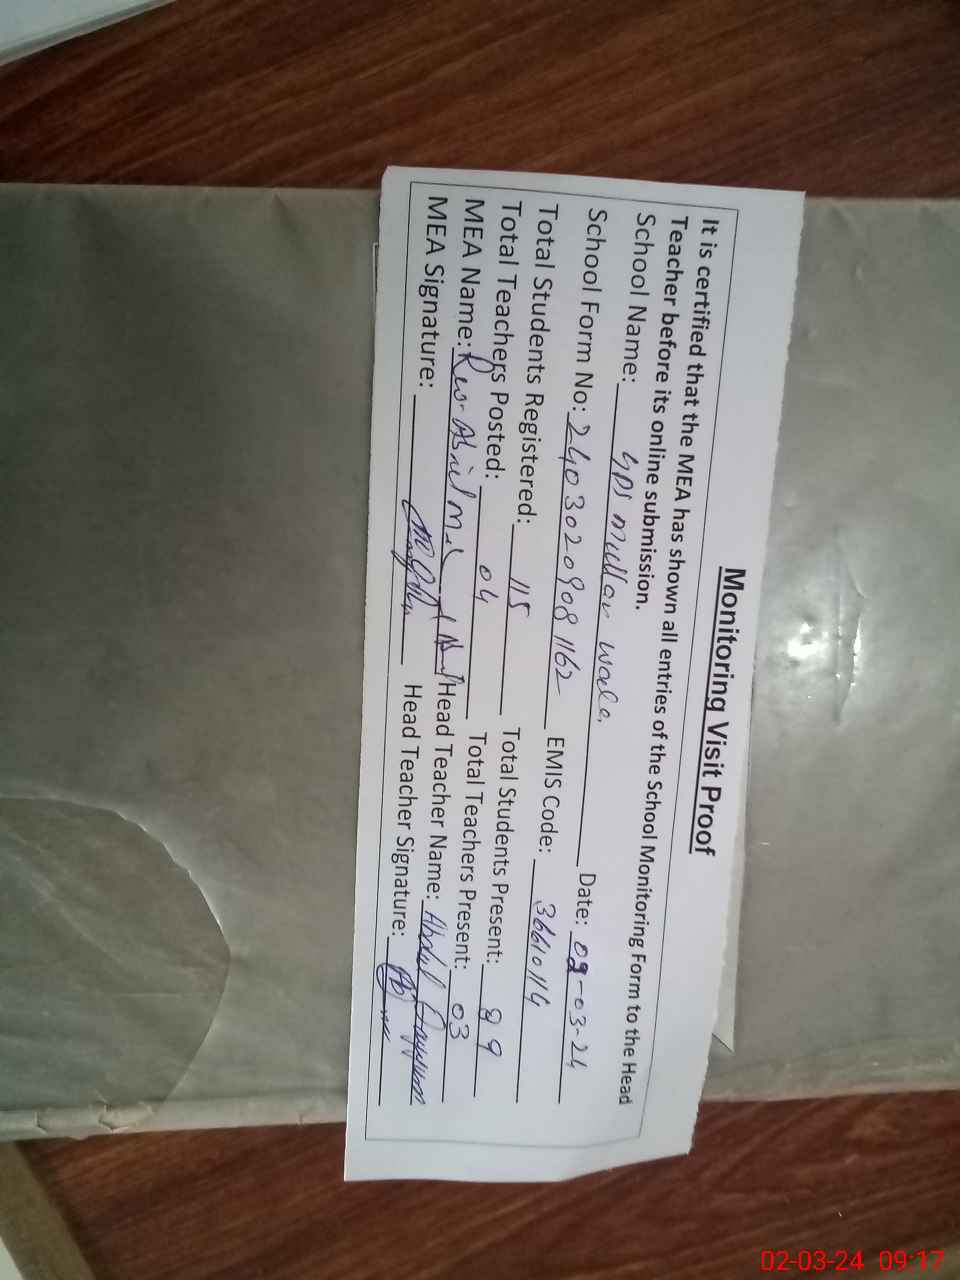 Monitoring Visit Proof
It is certified that the MEA has shown all entries of the School Monitoring Form to the Head
Teacher before its online submission.
School Name: GPS Mullan wala Date: 02-03-24
School Form No: 24030209081162 EMIS Code: 36610114
Total Students Registered: 115 Total Students Present: 89
Total Teachers Posted: 04 Total Teachers Present: 03
MEA Name: Head Teacher Name: Abdul Qayyum
MEA Signature: Head Teacher Signature:
02-03-24 09:17